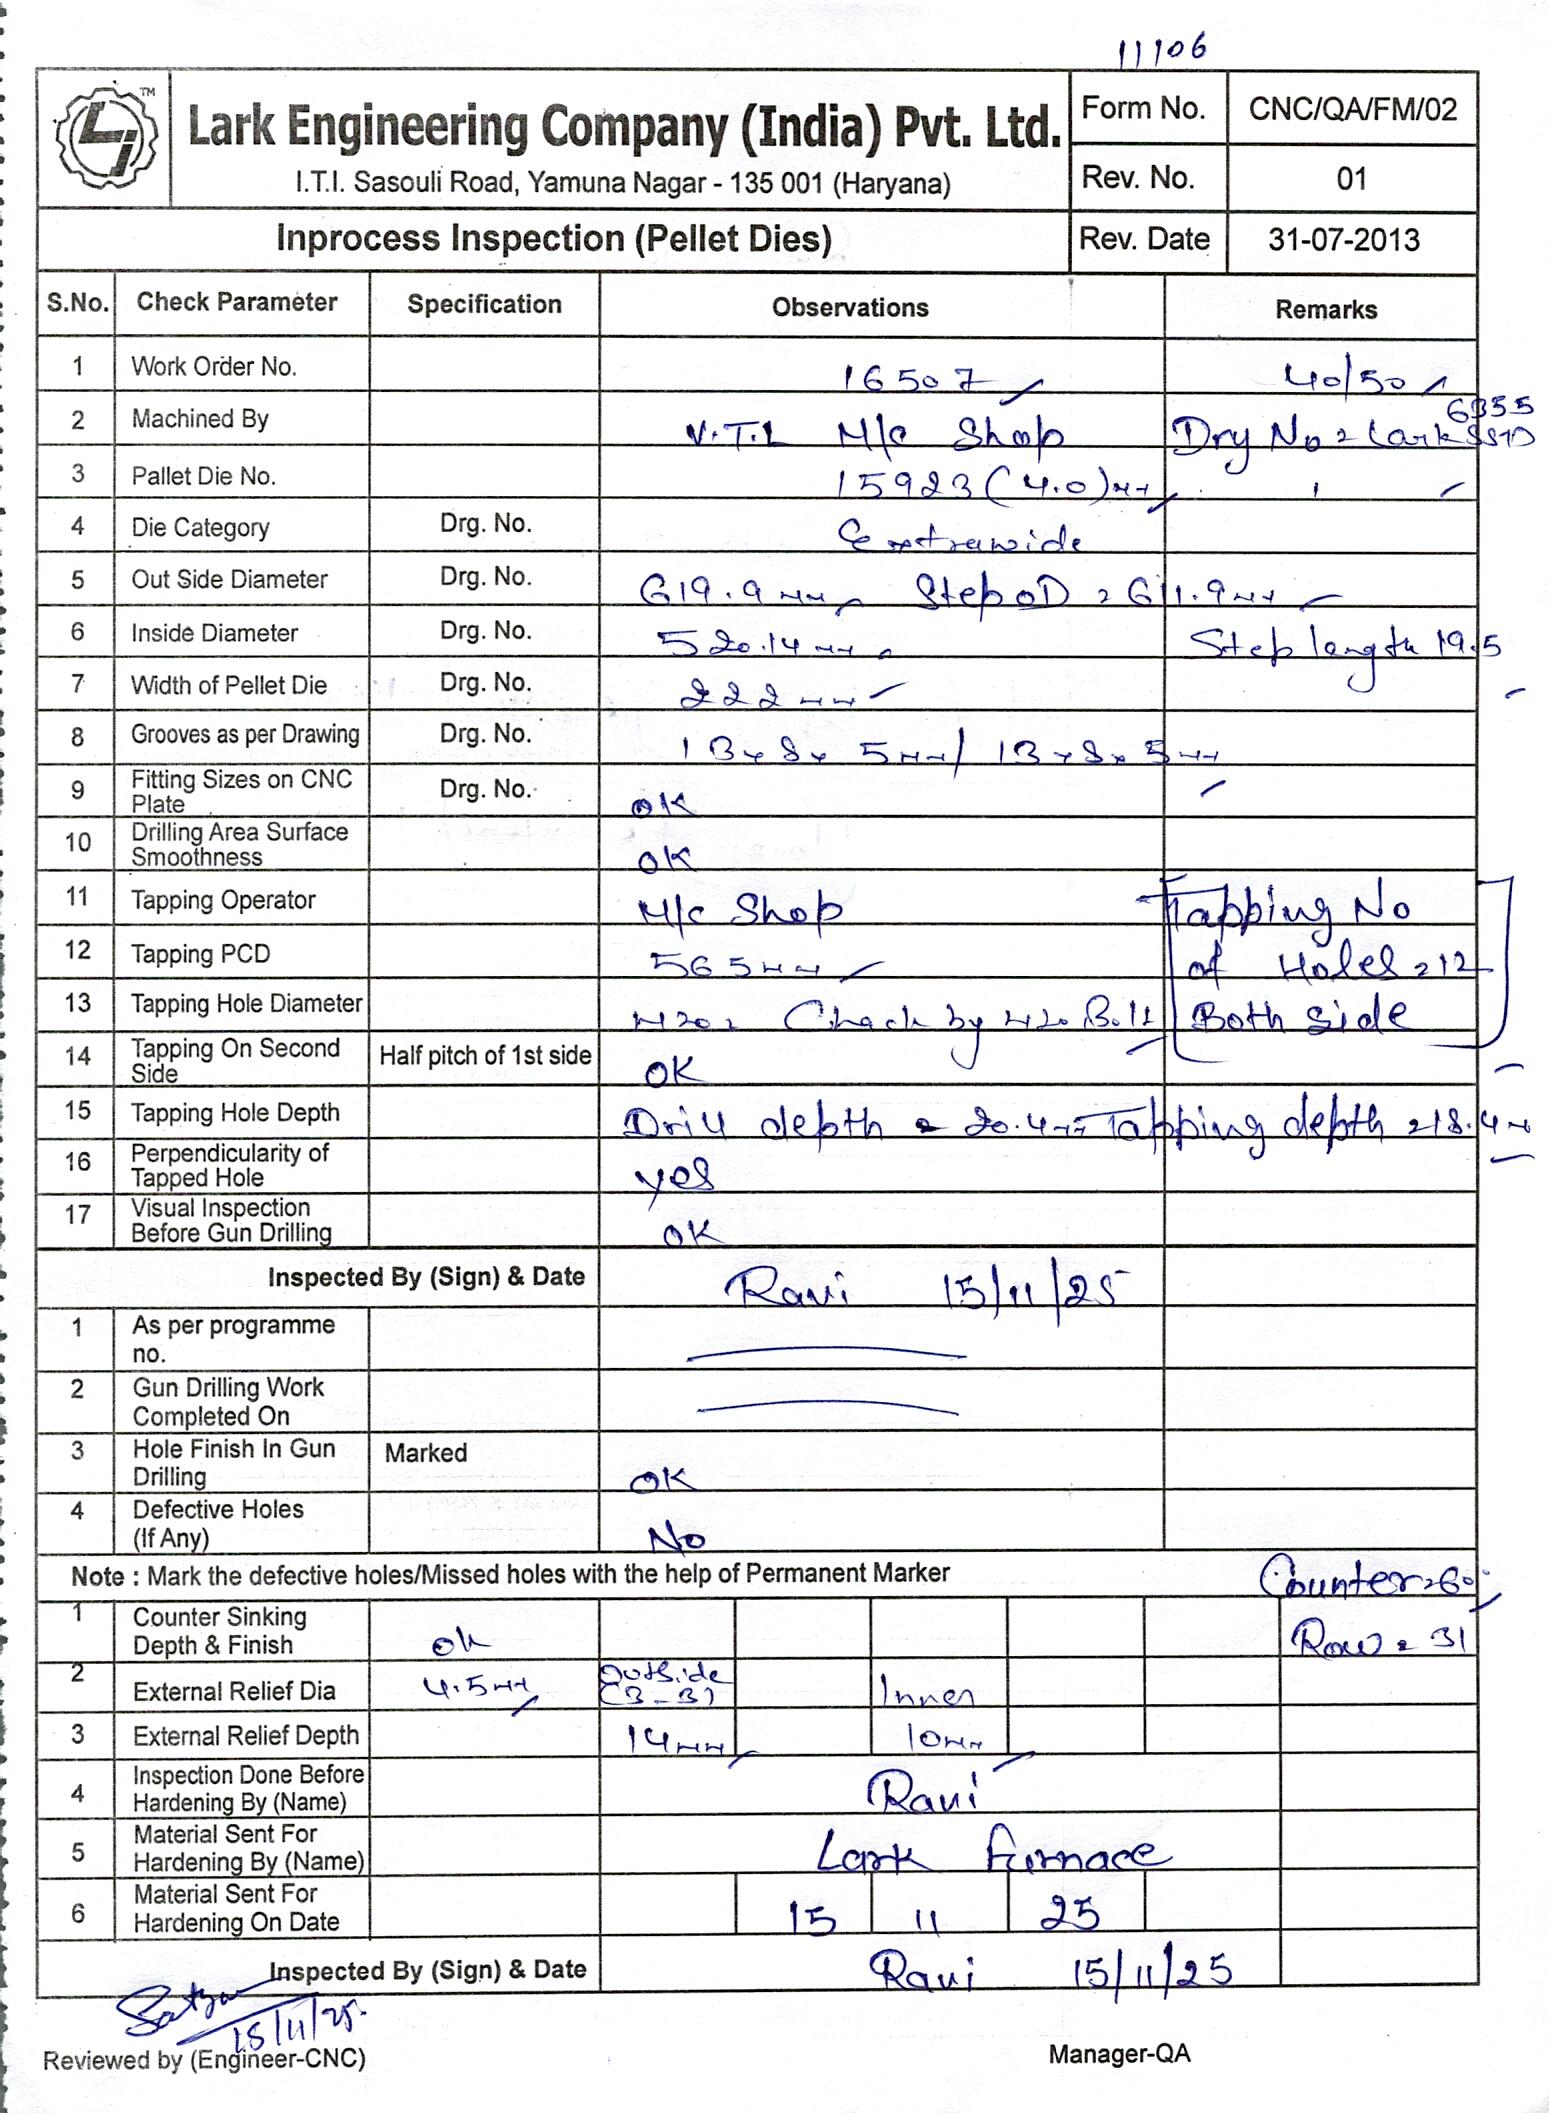 11106
TM
Lark Engineering Company (India) Pvt. Ltd.
I.T.I. Sasouli Road, Yamuna Nagar - 135 001 (Haryana)
Form No. CNC/QA/FM/02
Rev. No. 01
Inprocess Inspection (Pellet Dies) Rev. Date 31-07-2013
S.No. Check Parameter Specification Observations Remarks
1 Work Order No. 16507 40/50
2 Machined By V.T.L M/c Shop Drg No = Lark 6355
3 Pallet Die No. 15923 (4.0)mm
4 Die Category Drg. No. Extrawide
5 Out Side Diameter Drg. No. 619.9mm Step OD = 611.9mm
6 Inside Diameter Drg. No. 520.14mm Step length 19.5
7 Width of Pellet Die Drg. No. 222mm
8 Grooves as per Drawing Drg. No. 13x8x5mm/13x8x5mm
9 Fitting Sizes on CNC Plate Drg. No. OK
10 Drilling Area Surface Smoothness OK
11 Tapping Operator M/c Shop Tapping No
12 Tapping PCD 565mm of Holes = 12
13 Tapping Hole Diameter M20 = Check by M20 Bolt Both side
14 Tapping On Second Side Half pitch of 1st side OK
15 Tapping Hole Depth Drill depth = 20.4mm Tapping depth = 18.4m
16 Perpendicularity of Tapped Hole yes
17 Visual Inspection Before Gun Drilling OK
Inspected By (Sign) & Date Ravi 15/11/25
1 As per programme no.
2 Gun Drilling Work Completed On
3 Hole Finish In Gun Drilling Marked OK
4 Defective Holes (If Any) No
Note : Mark the defective holes/Missed holes with the help of Permanent Marker Counter = 60°
1 Counter Sinking Depth & Finish ok Row = 31
2 External Relief Dia 4.5mm Outside (3-3) Inner
3 External Relief Depth 14mm 10mm
4 Inspection Done Before Hardening By (Name) Ravi
5 Material Sent For Hardening By (Name) Lark Furnace
6 Material Sent For Hardening On Date 15 11 25
Inspected By (Sign) & Date Ravi 15/11/25
15/11/25.
Reviewed by (Engineer-CNC) Manager-QA